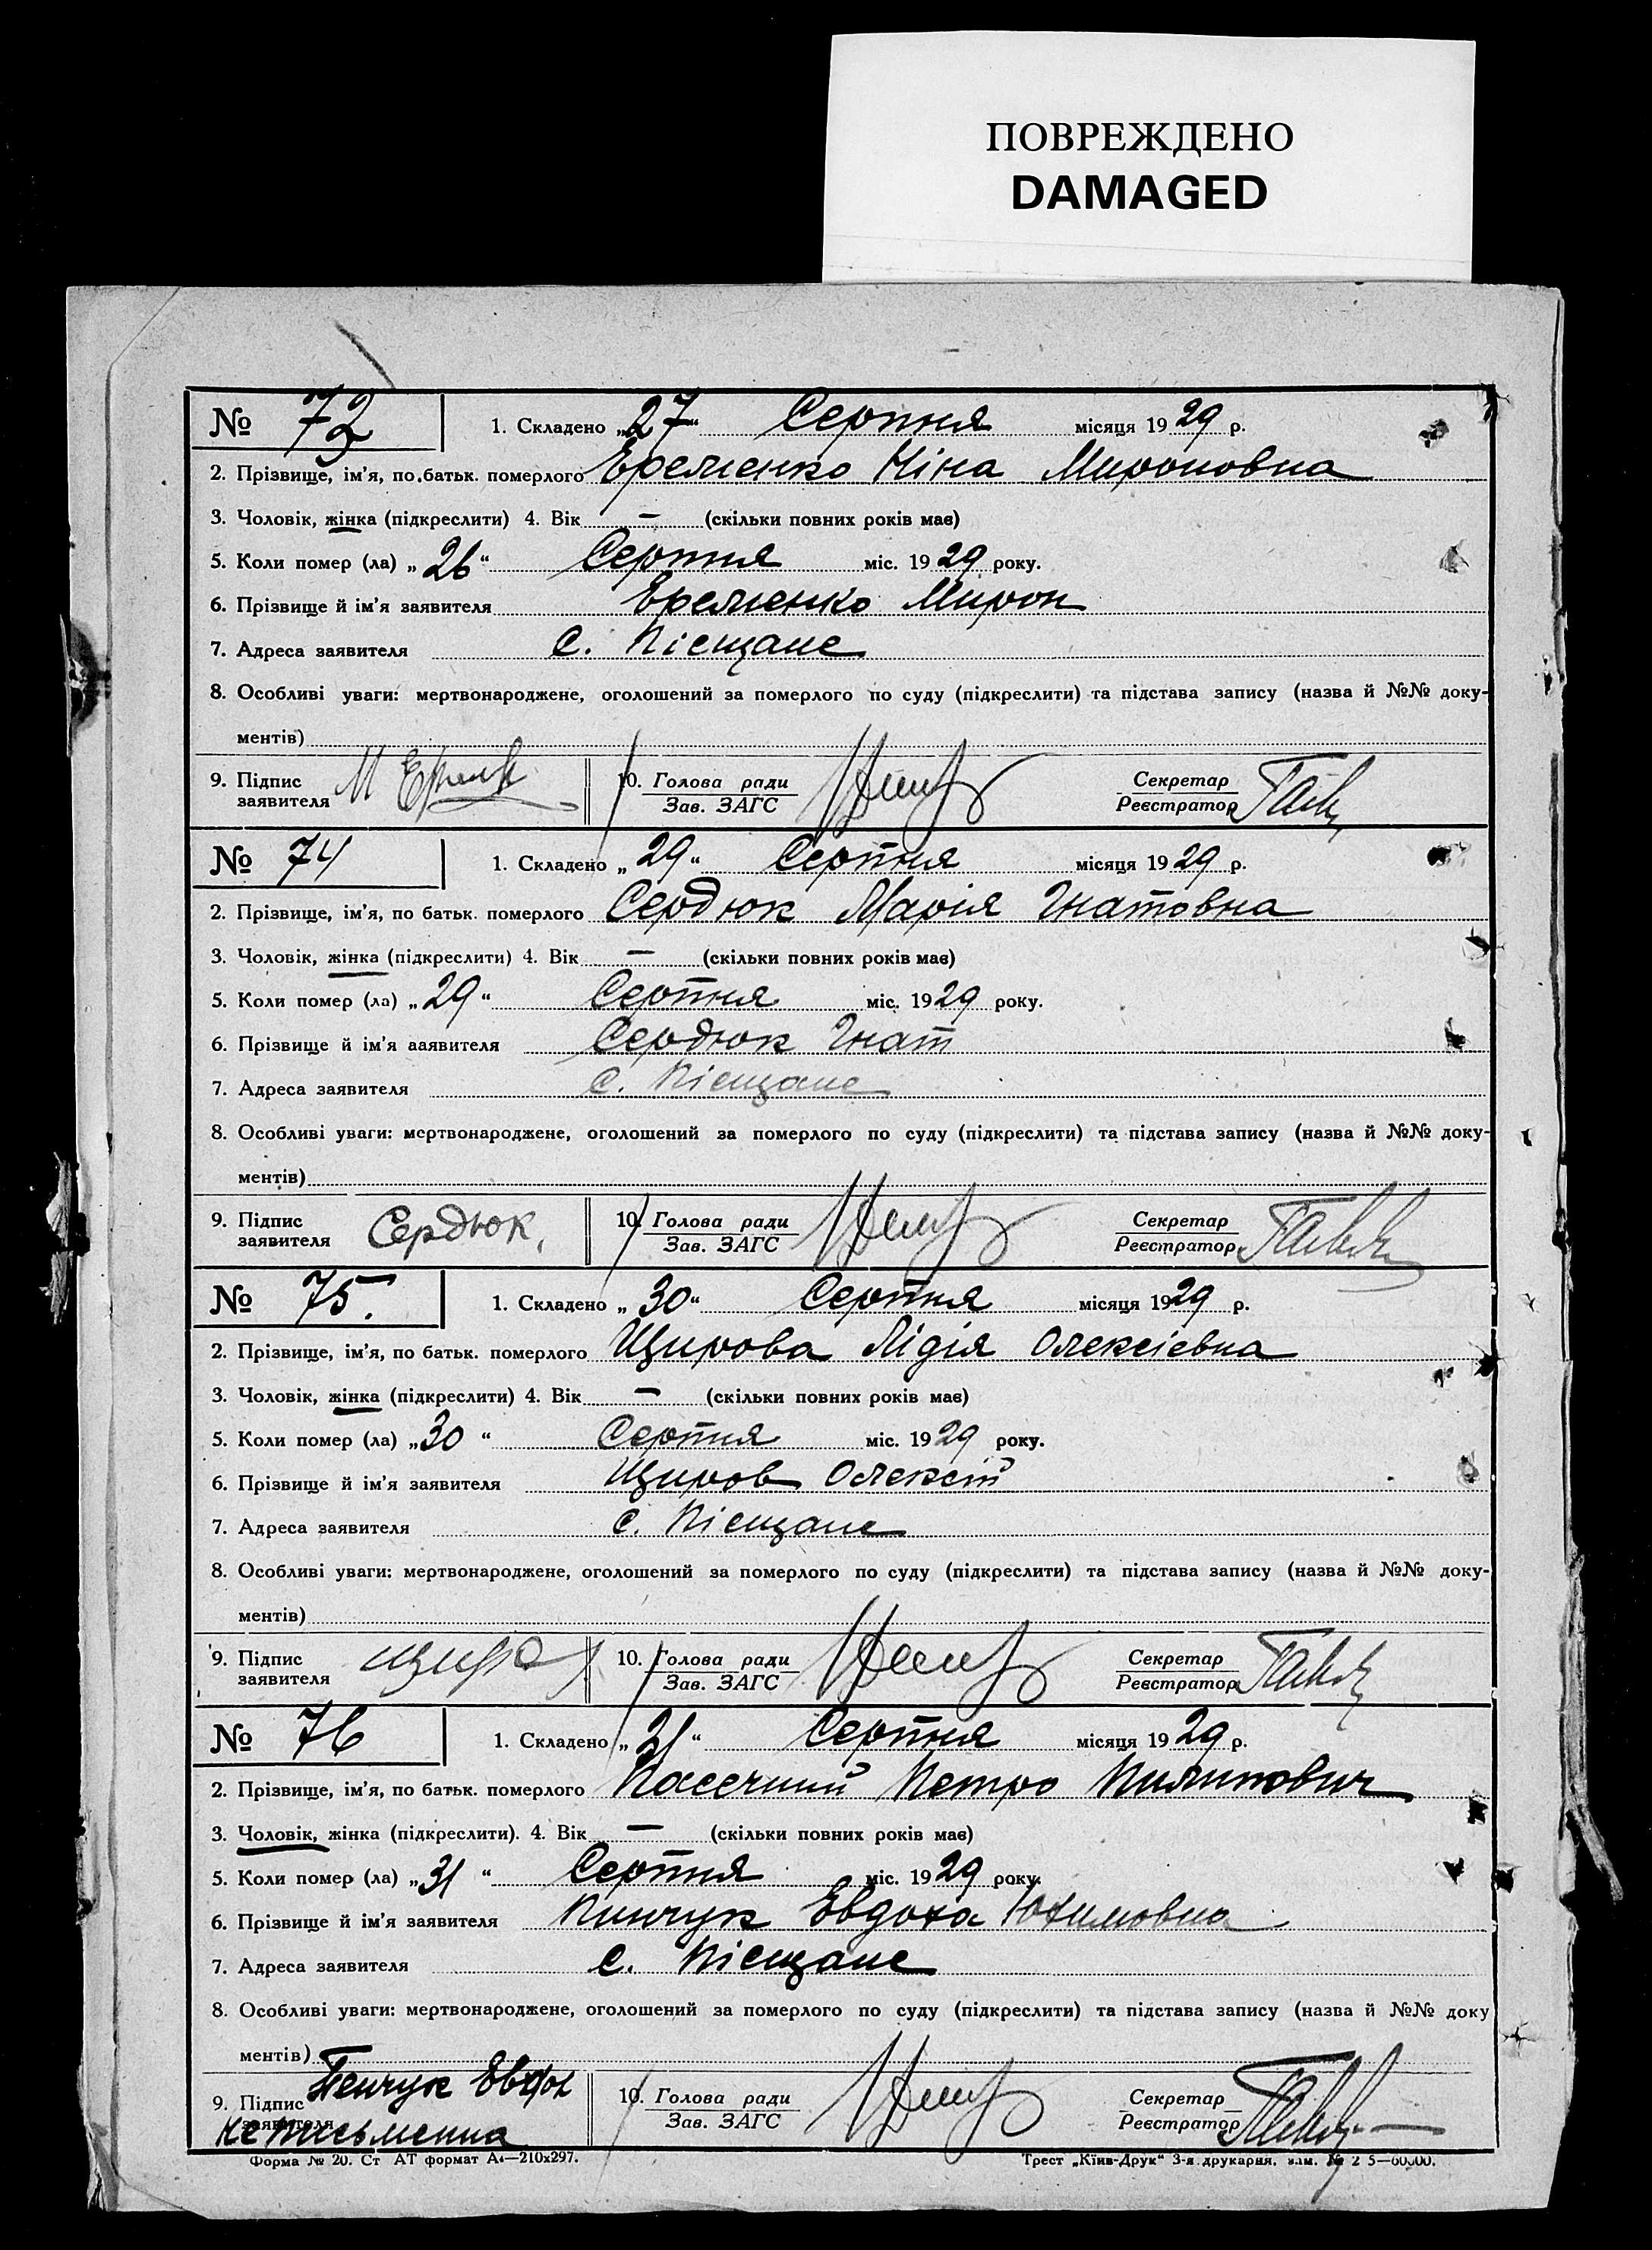 ПОВРЕЖДЕНО
DAMAGED
№ 73 1. Складено „27“ Серпня місяця 1929 р.
2. Прізвище, ім'я, по батьк. померлого Еременко Ніна Мироновна
3. Чоловік, жінка (підкреслити) 4. Вік — (скільки повних років має)
5. Коли помер (ла) „26“ Серпня міс. 1929 року.
6. Прізвище й ім'я заявителя Еременко Мирон
7. Адреса заявителя с. Піещане
8. Особливі уваги: мертвонароджене, оголошений за померлого по суду (підкреслити) та підстава запису (назва й №№ доку-
ментів)
9. Підпис заявителя М 10. Голова ради Зав. ЗАГС Секретар Реєстратор
№ 74 1. Складено „29“ Серпня місяця 1929 р.
2. Прізвище, ім'я, по батьк. померлого Сердюк Марія Гнатовна
3. Чоловік, жінка (підкреслити) 4. Вік — (скільки повних років має)
5. Коли помер (ла) „29“ Серпня міс. 1929 року.
6. Прізвище й ім'я ааявителя Сердюк Гнат
7. Адреса заявителя с. Піещане
8. Особливі уваги: мертвонароджене, оголошений за померлого по суду (підкреслити) та підстава запису (назва й №№ доку-
ментів)
9. Підпис заявителя Сердюк, 10. Голова ради Зав. ЗАГС Секретар Реєстратор
№ 75. 1. Складено „30“ Серпня місяця 1929 р.
2. Прізвище, ім'я, по батьк. померлого Щирова Лідія Олексіевна
3. Чоловік, жінка (підкреслити) 4. Вік — (скільки повних років має)
5. Коли помер (ла) „30“ Серпня міс. 1929 року.
6. Прізвище й ім'я заявителя Щиров Олексій
7. Адреса заявителя с. Піещане
8. Особливі уваги: мертвонароджене, оголошений за померлого по суду (підкреслити) та підстава запису (назва й №№ доку-
ментів)
9. Підпис заявителя 10. Голова ради Зав. ЗАГС Секретар Реєстратор
№ 76 1. Складено „31“ Серпня місяця 1929 р.
2. Прізвище, ім'я, по батьк. померлого Пасечний Петро Пилипович
3. Чоловік, жінка (підкреслити). 4. Вік — (скільки повних років має)
5. Коли помер (ла) „31“ Серпня міс. 1929 року.
6. Прізвище й ім'я заявителя Пинчук Евдоха Юхимовна
7. Адреса заявителя с. Піещане
8. Особливі уваги: мертвонароджене, оголошений за померлого по суду (підкреслити) та підстава запису (назва й №№ доку
ментів)
9. Підпис заявителя Пенчук Евдох неписьменна 10. Голова ради Зав. ЗАГС Секретар Реєстратор
Форма № 20. Ст АТ формат А4—210х297. Трест „Київ-Друк“ 3-я друкарня. зам. № 2 5—60000.